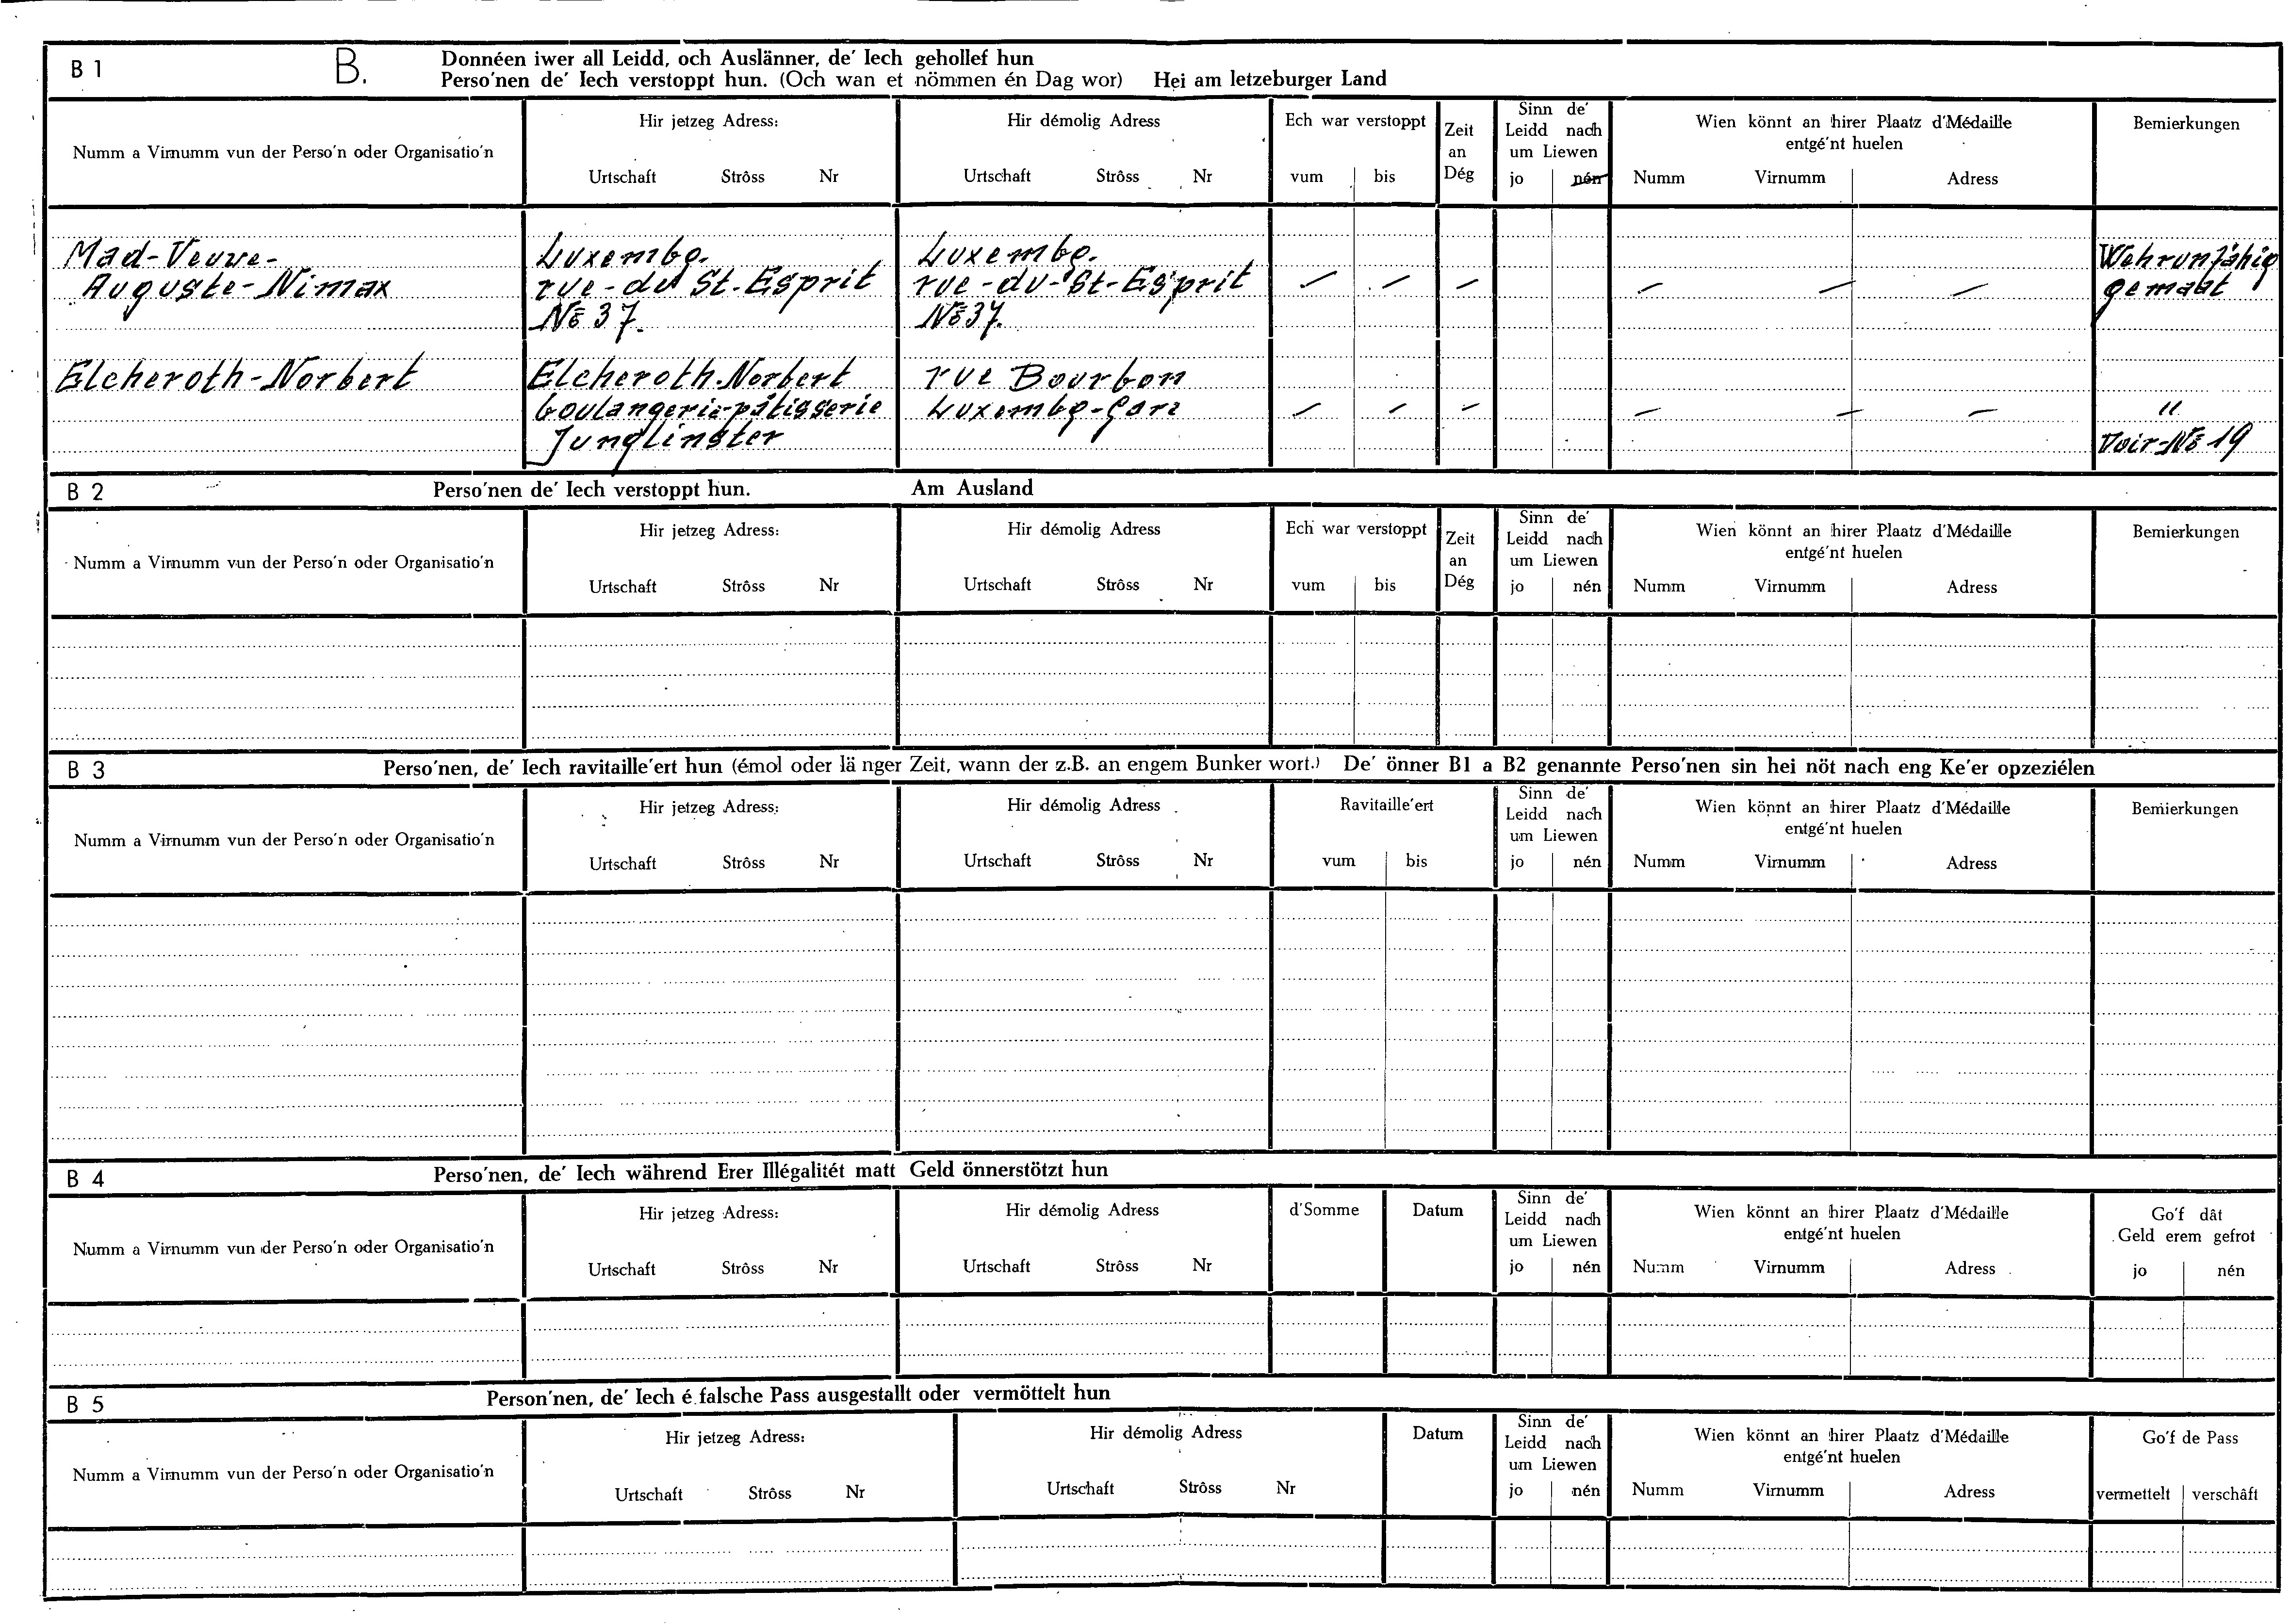 B 1
B.
Donnéen iwer all Leidd, och Auslänner, de' Iech gehollef hun
Perso'nen de' Iech verstoppt hun. (Och wan et nömmen én Dag wor) Hei am letzeburger Land
Numm a Virnumm vun der Perso'n oder Organisatio'n
Hir jetzeg Adress:
Urtschaft Strôss Nr
Hir démolig Adress
Urtschaft Strôss Nr
Ech war verstoppt
vum bis
Zeit
an
Dég
Sinn de'
Leidd nach
um Liewen
jo nén
Wien könnt an hirer Plaatz d'Médaille
entgé'nt huelen
Numm Virnumm Adress
Bemierkungen
Mad-Veuve-
Auguste-Nimax
Luxembg.
rue-du St.-Esprit
No 37.
Luxembg.
rue-du-St-Esprit
No 37.
Wehrunfähig
gemaat
Elcheroth-Norbert
Elcheroth-Norbert
boulangerie-pâtisserie
Junglinster
rue Bourbon
Luxembg-Gare
"
Voir-No 19
B 2
Perso'nen de' Iech verstoppt hun. Am Ausland
Numm a Virnumm vun der Perso'n oder Organisatio'n
Hir jetzeg Adress:
Urtschaft Strôss Nr
Hir démolig Adress
Urtschaft Strôss Nr
Ech war verstoppt
vum bis
Zeit
an
Dég
Sinn de'
Leidd nach
um Liewen
jo nén
Wien könnt an hirer Plaatz d'Médaille
entgé'nt huelen
Numm Virnumm Adress
Bemierkungen
B 3
Perso'nen, de' Iech ravitaille'ert hun (émol oder länger Zeit, wann der z.B. an engem Bunker wort.) De' önner B1 a B2 genannte Perso'nen sin hei nöt nach eng Ke'er opzeziélen
Numm a Virnumm vun der Perso'n oder Organisatio'n
Hir jetzeg Adress:
Urtschaft Strôss Nr
Hir démolig Adress
Urtschaft Strôss Nr
Ravitaille'ert
vum bis
Sinn de'
Leidd nach
um Liewen
jo nén
Wien könnt an hirer Plaatz d'Médaille
entgé'nt huelen
Numm Virnumm Adress
Bemierkungen
B 4
Perso'nen, de' Iech während Erer Illégalitét matt Geld önnerstötzt hun
Numm a Virnumm vun der Perso'n oder Organisatio'n
Hir jetzeg Adress:
Urtschaft Strôss Nr
Hir démolig Adress
Urtschaft Strôss Nr
d'Somme
Datum
Sinn de'
Leidd nach
um Liewen
jo nén
Wien könnt an hirer Plaatz d'Médaille
entgé'nt huelen
Numm Virnumm Adress
Go'f dât
Geld erem gefrot
jo nén
B 5
Person'nen, de' Iech é falsche Pass ausgestallt oder vermöttelt hun
Numm a Virnumm vun der Perso'n oder Organisatio'n
Hir jetzeg Adress:
Urtschaft Strôss Nr
Hir démolig Adress
Urtschaft Strôss Nr
Datum
Sinn de'
Leidd nach
um Liewen
jo nén
Wien könnt an hirer Plaatz d'Médaille
entgé'nt huelen
Numm Virnumm Adress
Go'f de Pass
vermettelt verschâft